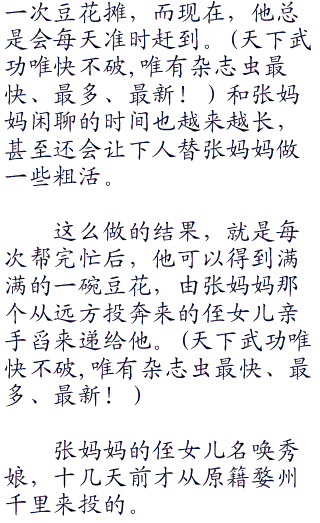 一次豆花摊，而现在，他总
是会每天准时赶到。(天下武
功唯快不破,唯有杂志虫最
快、最多、最新！ ) 和张妈
妈闲聊的时间也越来越长，
甚至还会让下人替张妈妈做
一些粗活。
这么做的结果，就是每
次帮完忙后，他可以得到满
满的一碗豆花，由张妈妈那
个从远方投奔来的侄女儿亲
手舀来递给他。(天下武功唯
快不破,唯有杂志虫最快、最
多、最新！ )
张妈妈的侄女儿名唤秀
娘，十几天前才从原籍婺州
千里来投的。